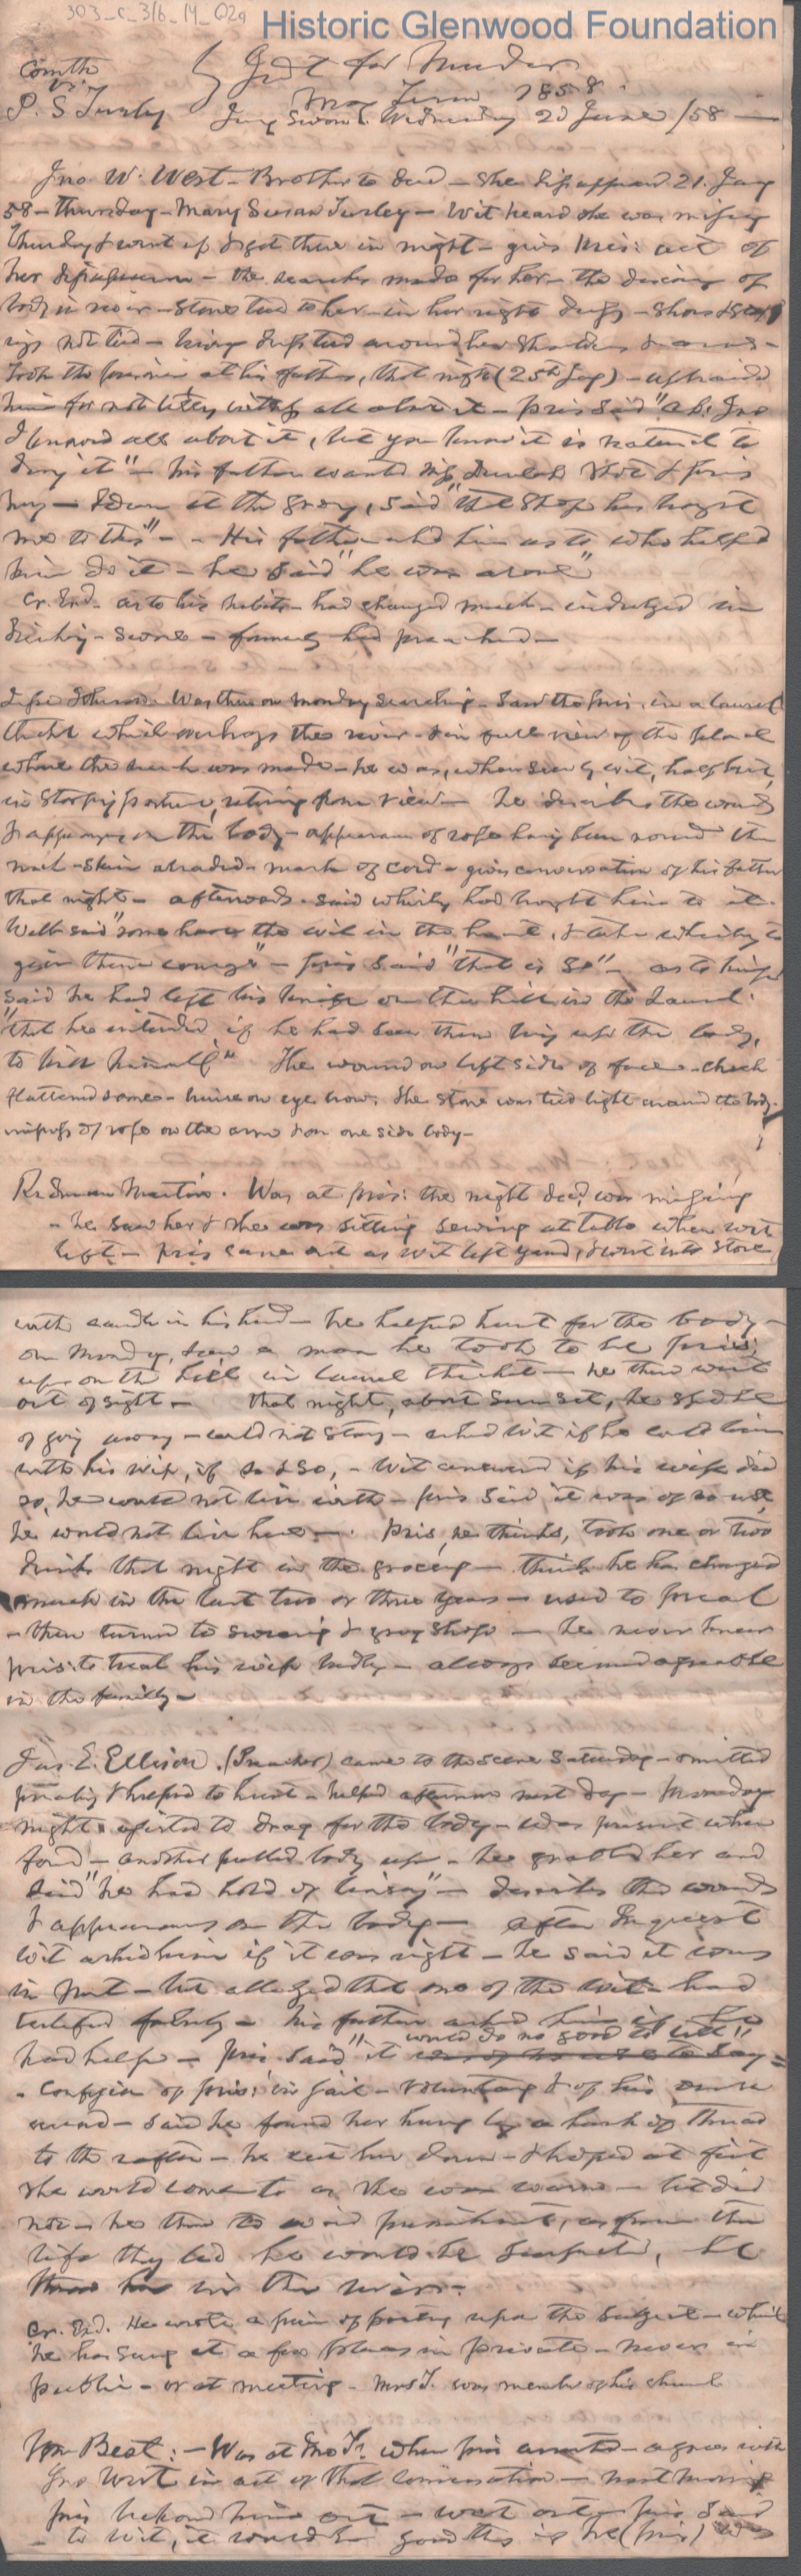 303_C_316_14_02a
Historic Glenwood Foundation
Comth
vs
P. S Turley
Indt for Murder
May Term 1858.
Jury Sworn Wednesday 2d June /58 —
Jno W. West - Brother to decd - She disappeard 21. Jany
58 - Thursday - Mary Susan Turley - Wit heard she was missing
Thursday & went up & got there in night - gives his act of
her disappearance - the search made for her - the discovery of
body in river - Stone tied to her - in her night dress - Shoes & stock
ings not tied - being dress tied around her shoulders & arms -
took the prisoner at his fathers, that night (25th Jany) - upbraided
him for not telling all about it - pris said "ah! Jno
I know all about it, but you know it is natural to
deny it" - his father wanted
at the grocery, said "the Shop has brought
me to this" - - His father asked him as to who helped
him do it - he said "he was alone"
Cr. Exd. as to his habits - had changed much - indulged in
drinking - swore - formerly had preached -
Johnson. Was there on Monday searching. Saw the pris. in a laurel
thicket which overhangs the river - & in full view of the place
where the search was made - he was, when seen by wit, half bent,
in stooping posture, retiring from view - he describes the wounds
& appearance on the body - appearance of rope having been round the
neck - skin abraded - mark of cord - gives conversation of his father
that night - afterwards - said whisky had brought him to it.
Webb said "some have the evil in the heart, & take whisky to
give them courage" - pris said "that is so" - as to knife
said he had left his knife on the hill in the Laurel.
"that he intended if he had seen them bring up the body,
to kill himself" The wound on left side of face - cheek
flattened some - bruise on eye brow. The stone was tied tight around the body.
impress of rope on the arm & on one side body -
Redman Martin. Was at pris: the night decd was missing
- he saw her & she was sitting sewing at table when wit
left - pris came out as wit left yard, & went into store
with candle in his hand - he helped hunt for the body -
on Monday, saw a man he took to be pris:
up on the hill in laurel thicket - he then went
out of sight - that night, about Sun set, he spoke
of going away - could not stay - asked wit if he could live
with his wife, if so & so, - Wit answered if his wife did
so, he would not live with - pris said it was of no use,
he would not live here - . Pris, he thinks, took one or two
drinks that night in the grocery - thinks he has changed
much in the last two or three years - used to preach
- then turned to swearing & grog shop - he never knew
pris: to treat his wife badly - always seemed agreeable
in the family -
Jas. E. Ellison. (Preacher) came to the scene Saturday - omitted
preaching & helped to hunt - helped afternoon next day - Monday
night assisted to drag for the body - was present when
found - another pulled body up - he grabbed her and
said "he had hold of linsey" - describes the wounds
& appearances on the body - after Inquest
wit asked him if it was right - he said it was
in part - but alledged that one of the wit had
testified falsely - his father asked him if he
had help - pris. said "it would do no good to tell"
was of no use to say -
- Confession of pris: in jail - voluntary & of his own
accord - said he found her hung by a hank of thread
to the rafter - he cut her down - & hoped at first
she would come to as she was warm - but did
not - he then to avoid punishment, as from the
life they led he would be suspected, he
threw her in the river. -
Cr. Exd. He wrote a piece of poetry upon the subject - which
he has sung at a few places in private - never in
public - or at meeting - Mrs T. was member of his church
Wm Beat: - Was at Jno Ts. when pris arrested - agrees with
Jno West in act of that conversation - next morning
pris beckond him out - went out - pris said
- to wit, it would be good